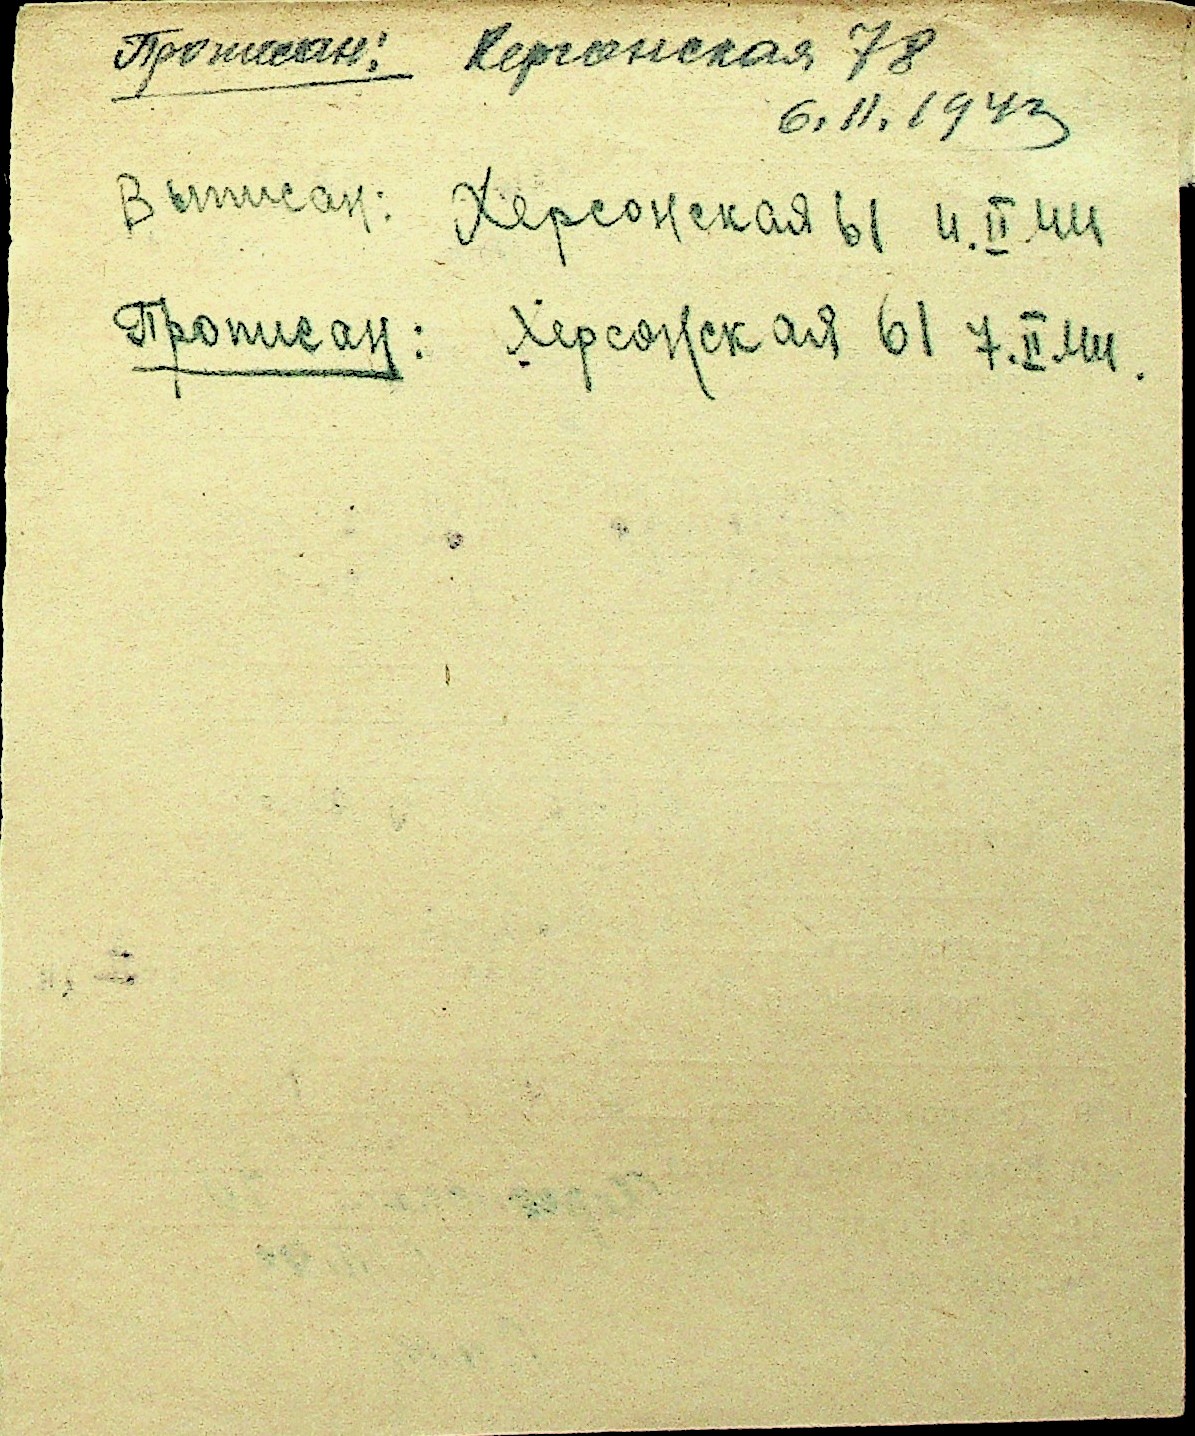 Прописан: Херсонская 78
6.11.1943
Выписан: Херсонская 61 4.II 44
Прописан: Херсонская 61 7.II 44.